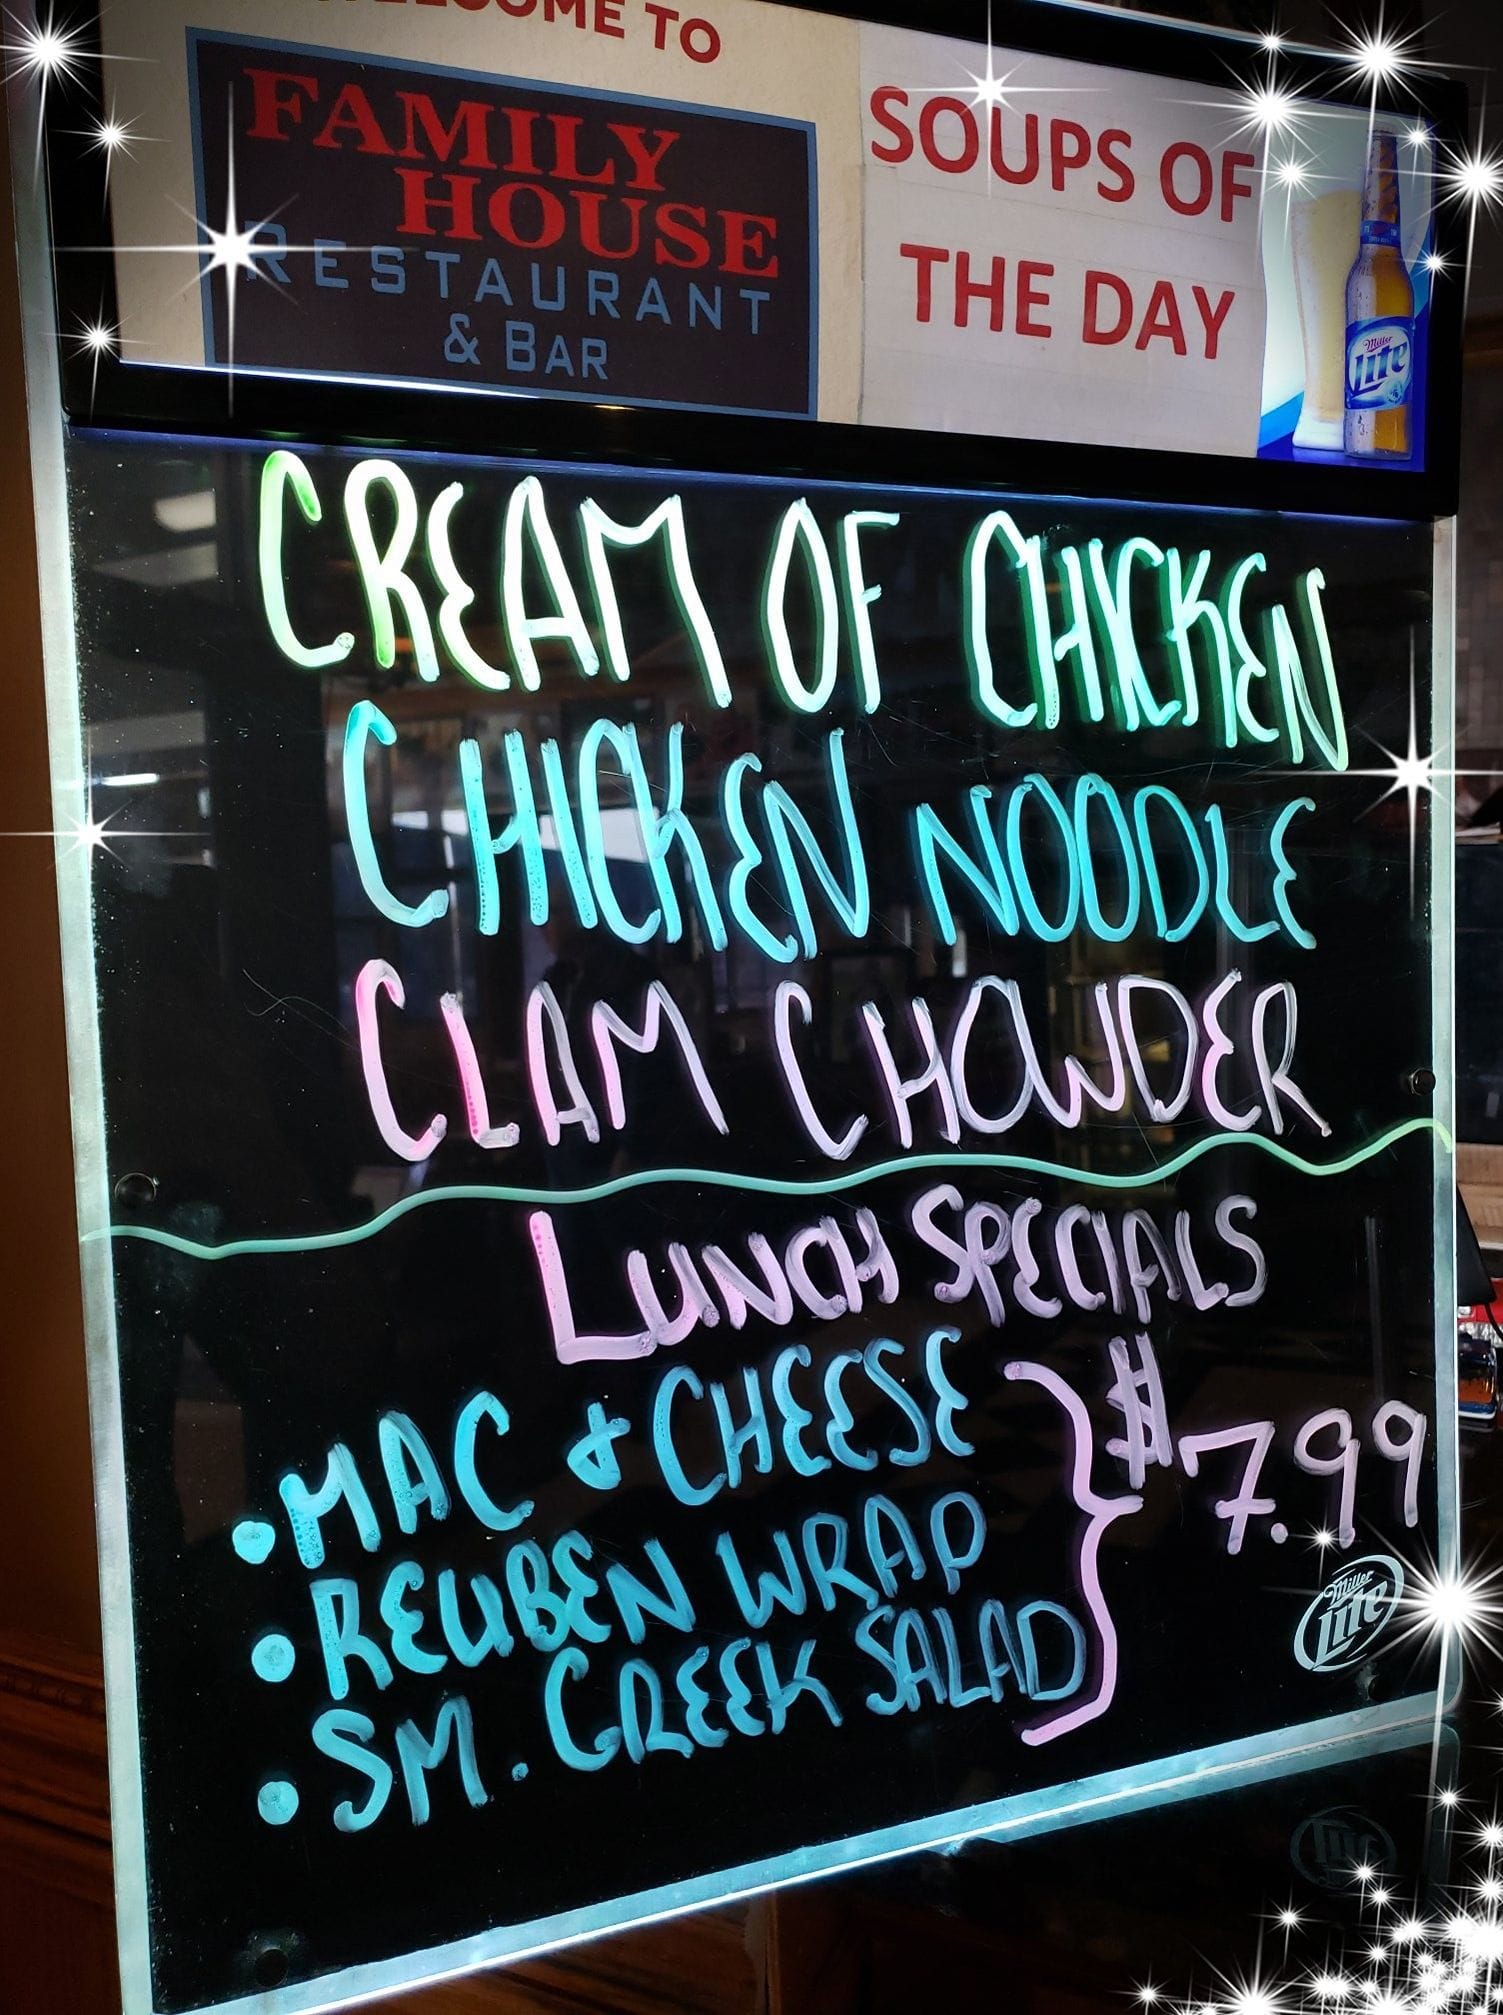 WELCOME TO
FAMILY
HOUSE
RESTAURANT
& BAR
SOUPS OF
THE DAY
Miller
Lite
CREAM OF CHICKEN
CHICKEN NOODLE
CLAM CHOWDER
LUNCH SPECIALS
• MAC & CHEESE
• REUBEN WRAP
• SM. GREEK SALAD
$7.99
Miller
Lite